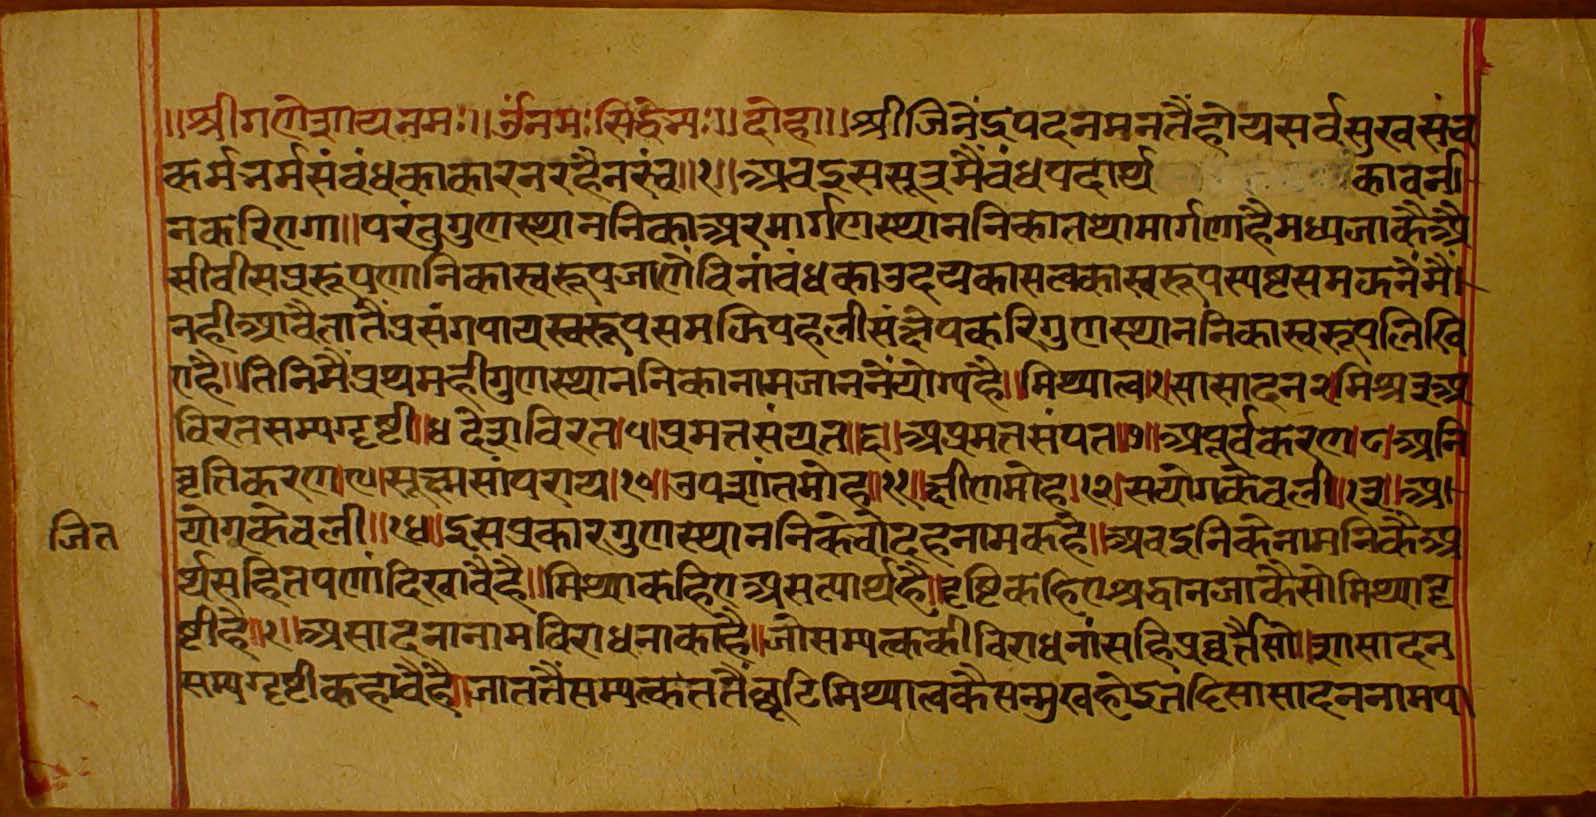 ॥श्रीगणेशायनमः॥ॐनमःसिद्धेभ्यः॥दोहा॥श्रीजिनेंद्रपदनमनतैंहोयसर्वसुखसंच
कर्मनर्मसंबंधकाकारनरहैनरंच॥१॥अबइससूत्रमैंबंधपदार्थ काबर्न
नकरिएगा॥परंतुगुणस्थाननिकाअरमार्गणस्थाननिकातथामार्गणाहैमध्यजाकैअै
सीबीसप्ररूपणानिकास्वरूपजाणेंविनांबंधकाउदयकासत्वकास्वरूपस्पष्टसमझनेंमैं
नहीआवैतातैंप्रसंगपायस्वरूपसमझिपहलीसंक्षेपकरिगुणस्थाननिकास्वरूपलिखि
एहै॥तिनिमैंप्रथमहीगुणस्थाननिकानामजाननेंयोग्यहै॥मिथ्यात्व।१।सासादन२।मिश्र३अ
विरतसम्यग्दृष्टी।४देशविरत।५।प्रमत्तसंयत॥६।अप्रमतसंयत।७॥अपूर्वकरण।८।अनि
वृत्तिकरण।९।सूक्ष्मसांपराय।१०।उपशांतमोह॥११।क्षीणमोह।१२।सयोगकेवली॥१३॥अ
योगकेवली॥१४॥इसप्रकारगुणस्थाननिकेचौदहनामकहे॥अबइनिकेनामनिकैअ
र्थसहितपणांदिखावैहै॥मिथ्याकहिएअसत्यार्थहै।दृष्टिकहिएश्रद्धानजाकैसोमिथ्यादृ
ष्टीहै॥१॥असादनानामविराधनाकाहै॥जोसम्यत्ककीविराधनांसहिप्रवर्त्तैसो।शासादन
सम्यग्दृष्टीकहावैंहै।जाततैंसम्यत्कततैंछूटिमिथ्यात्वकैसन्मुखहोइतंहिसासादननामपा
जित